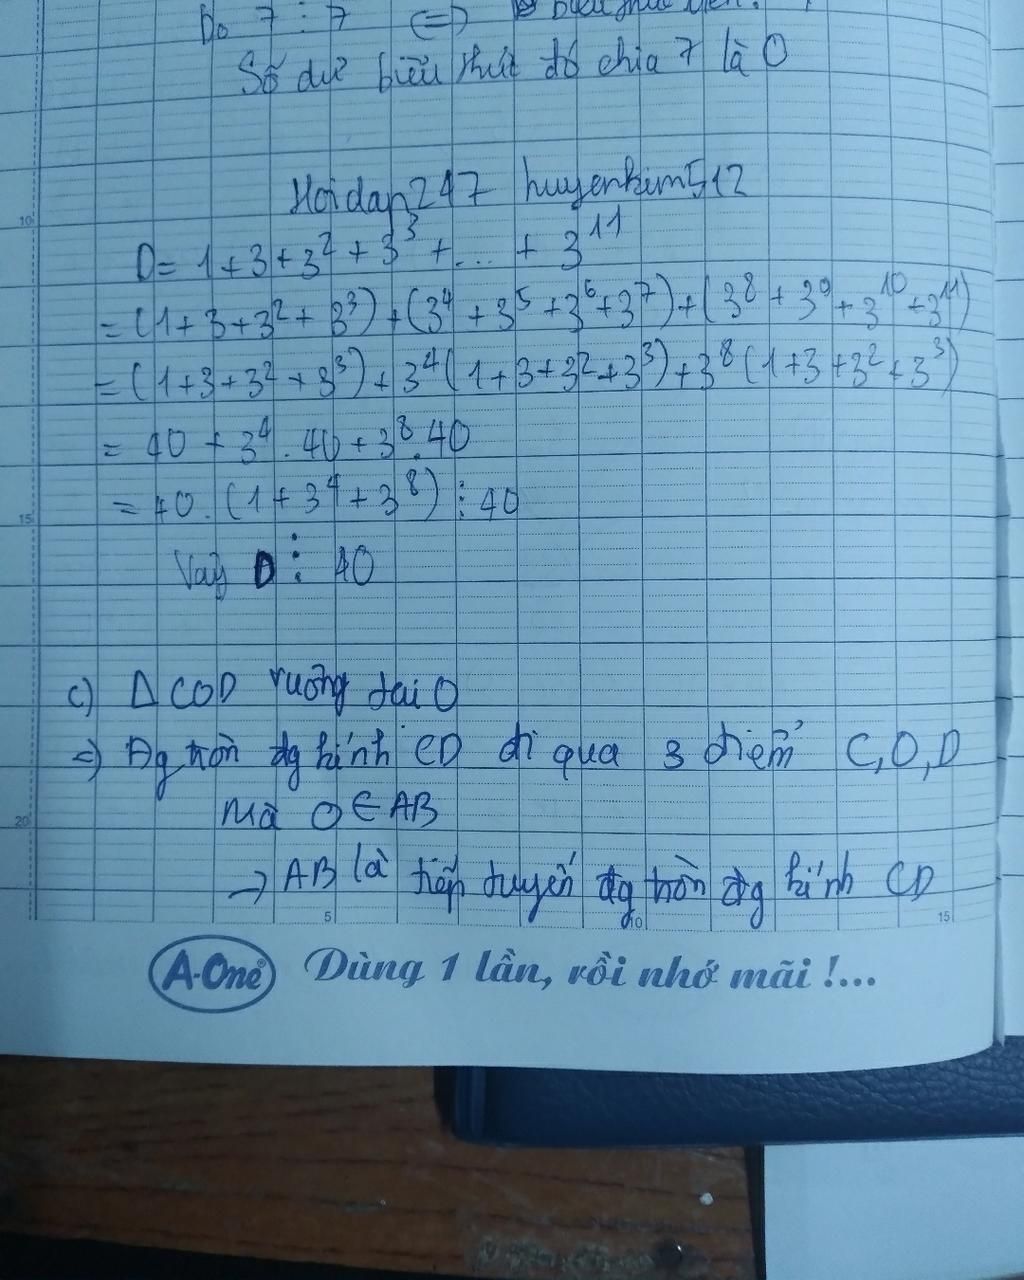 Do 7 ⋮ 7 (=)
Số dư biểu thức đó chia 7 là 0
Hoidap247 huyenkim512
D = 1 + 3 + 3² + 3³ + ... + 3¹¹
= (1 + 3 + 3² + 3³) + (3⁴ + 3⁵ + 3⁶ + 3⁷) + (3⁸ + 3⁹ + 3¹⁰ + 3¹¹)
= (1 + 3 + 3² + 3³) + 3⁴(1 + 3 + 3² + 3³) + 3⁸(1 + 3 + 3² + 3³)
= 40 + 3⁴ . 40 + 3⁸ . 40
= 40 . (1 + 3⁴ + 3⁸) ⋮ 40
Vậy D ⋮ 40
c) Δ COD vuông tại O
=) Đg tròn đg kính CD đi qua 3 điểm C, O, D
Mà O ∈ AB
→ AB là tiếp tuyến đg tròn đg kính CD
10
15
20
5 10 15
A-One® Dùng 1 lần, rồi nhớ mãi !....